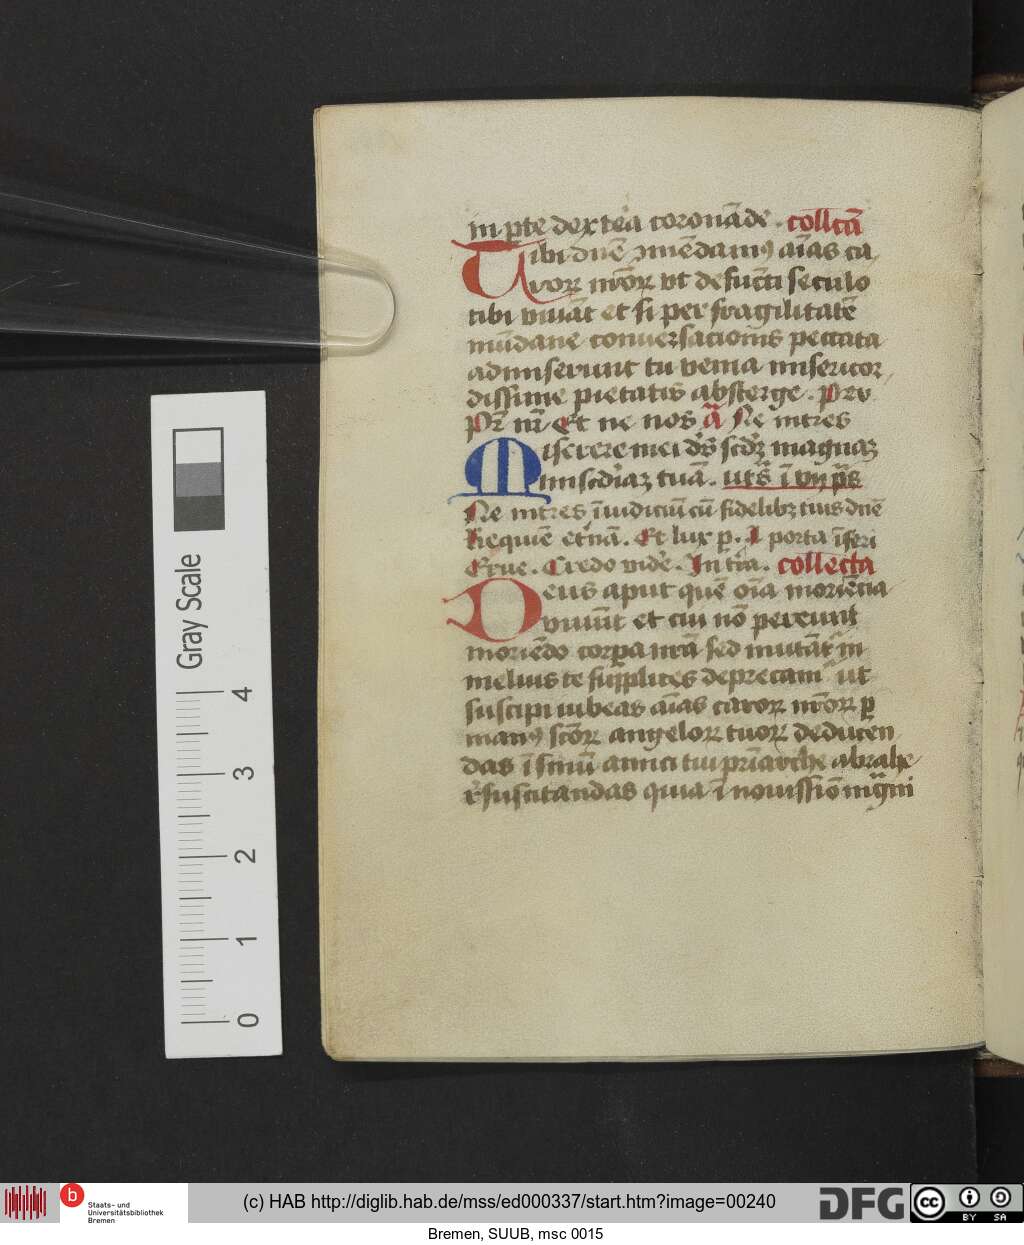 in pte dextera coronāde . collcā
Tibi dn̄e ꝯmēdamꝰ aīas ca
rorꝝ nr̄orꝝ vt defuncti seculo
tibi viuāt et si per fragilitatē
mūdane conuersacionis peccata
admiserunt tu venia misericor
dissime pietatis absterge . Prex
Pr̄ nr̄ Et ne nos ā Ne intres
Miserere mei ds̄ scd̄ꝫ magnaꝫ
misc̄diaꝫ tuā . vts̄ ī vij ps̄
Ne intres ī iudiciū cū fidelibꝫ tuis dn̄e
Requiē etnā . Et lux p . A porta īferi
Erue . Credo vidē . In tr̄a . collecta
Deus aput quē oīa moriētia
viuūt et cui nō pereunt
moriēdo corpa nr̄a sed mutāt in
melius te supplices deprecam ut
suscipi iubeas aīas carorꝝ nr̄orꝝ ꝑ
manꝰ sc̄orꝝ angelorꝝ tuorꝝ deducen
das ī sinū amici tui pr̄iarche abrahe
rͤsuscitandas quia ī nouissīo magni
Gray Scale
4
3
2
1
0
b Staats- und
Universitätsbibliothek
Bremen
(c) HAB http://diglib.hab.de/mss/ed000337/start.htm?image=00240
DFG
cc BY SA
Bremen, SUUB, msc 0015